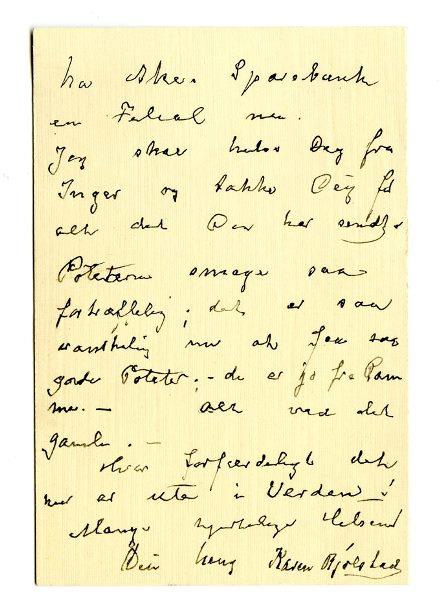 har Aker Sparebank
en Filial nu.
Jeg skal hilse Dig fra
Inger og takke Dig for
alt det Du har sendt.
Poteterne smage saa
fortræffelig; det er saa
vanskelig nu at faa saa
gode Poteter; - de er jo fra Ram
me. - Alt ved det
gamle. -
Hvor forfærdeligt det
her er ute i Verden!
Mange hjertelige Hilsener
Din heng Karen Bjølstad